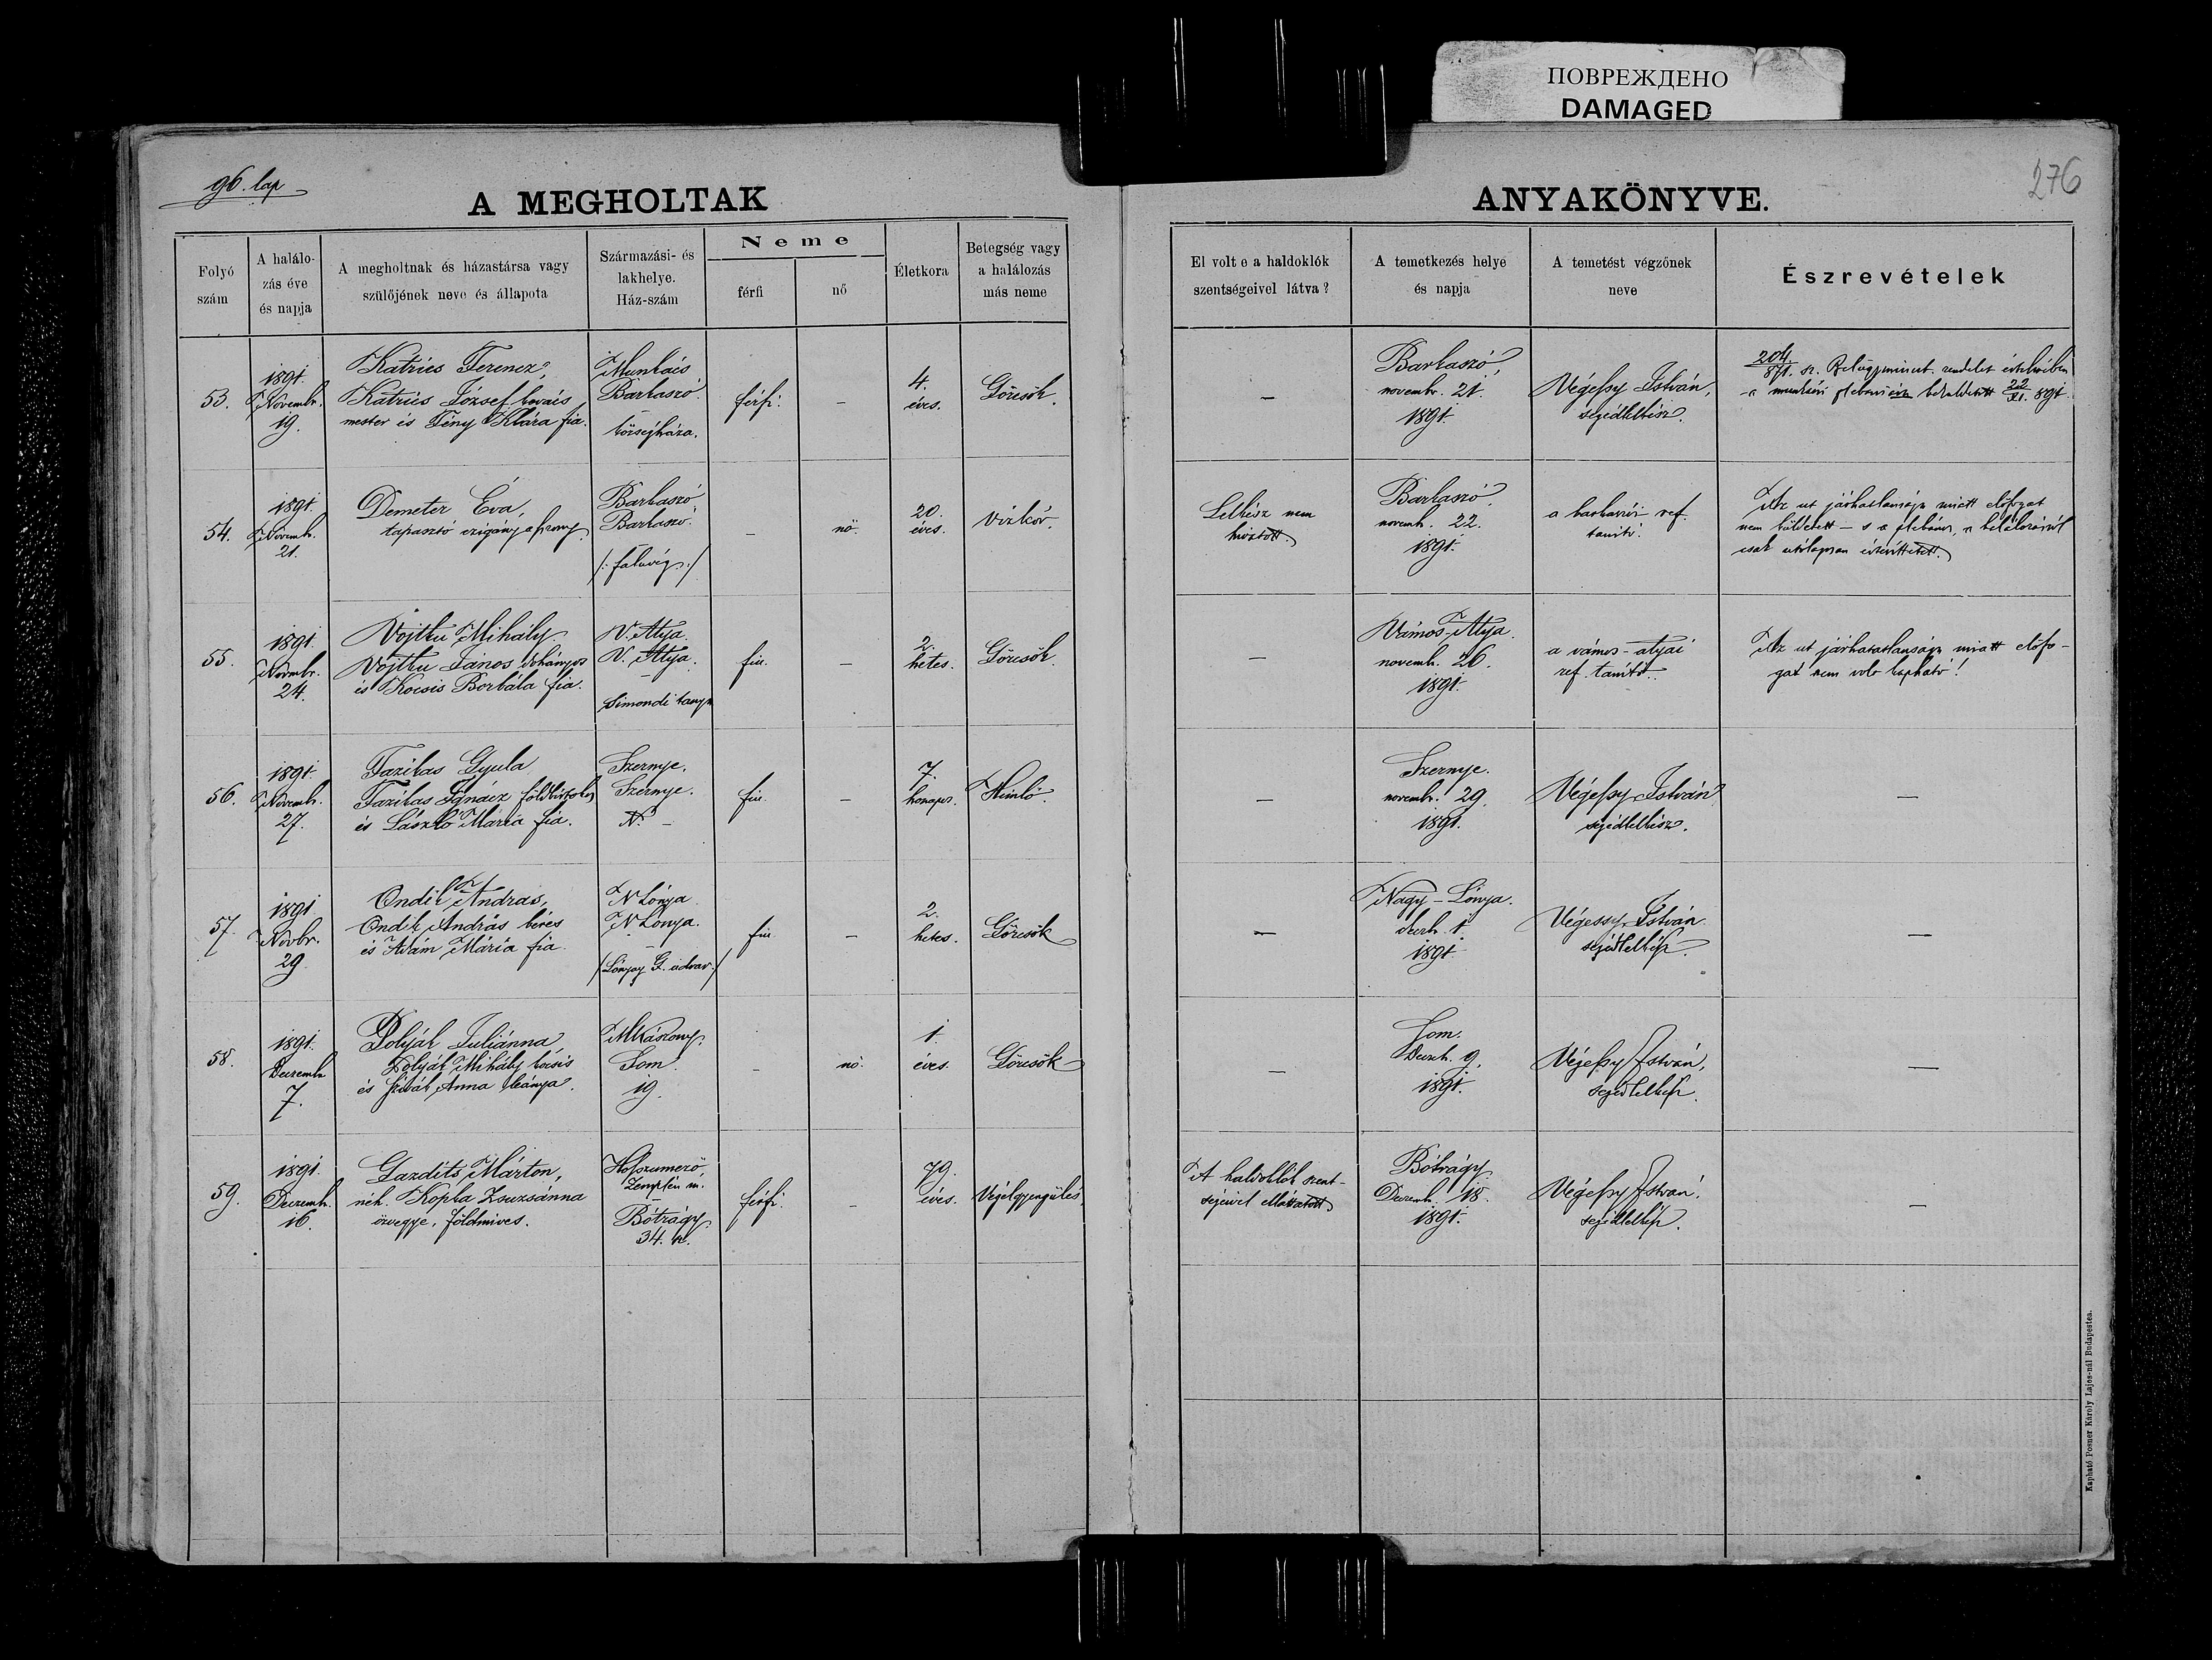 ПОВРЕЖДЕНО
DAMAGED
96. lap
276
A MEGHOLTAK
ANYAKÖNYVE.
Folyó szám
A halálozás éve és napja
A megholtnak és házastársa vagy szülőjének neve és állapota
Származási- és lakhelye. Ház-szám
Neme
férfi
nő
Életkora
Betegség vagy a halálozás más neme
El volt e a haldoklók szentségeivel látva?
A temetkezés helye és napja
A temetést végzőnek neve
Észrevételek
53.
1891.
Novembr.
19.
Katrics Ferencz,
Katrics József kovács
mester és Fény Klára fia.
Munkács
Barkaszó
községháza.
férfi.
–
4.
éves.
Görcsök.
–
Barkaszó,
novembr. 21.
1891.
Végessy István,
segédlelkész.
204/871. sz. Belügyminist. rendelet értelmében
a munkácsi beküldetett 22/XI. 891.
54.
1891.
Novemb.
21.
Demeter Éva,
tapasztó czigány
Barkaszó
Barkaszó.
/: faluvég :/
–
nő.
20.
éves.
Vízkór.
Lelkész nem
hivatott.
Barkaszó,
novemb. 22.
1891.
a barkaszói ref.
tanító.
Az ut járhatlansága miatt előfogat
nem küldetett – s a plébános, a halálozásról
csak utólagosan értesíttetett.
55.
1891.
Novembr.
24.
Vojtku Mihály.
Vojtku János dohányos
és Kocsis Borbála fia.
V. Atya.
V. Atya.
–
Simondi tanya
fiu.
–
2.
hetes.
Görcsök.
–
Vámos-Atya.
novemb. 26.
1891.
a vámos-atyai
ref. tanító.
Az ut járhatatlansága miatt előfo-
gat nem volt kapható!
56.
1891.
Novemb.
27.
Fazikas Gyula
Fazikas Ignácz földbirtokos
és László Mária fia.
Szernye.
Szernye.
N. –
fiu.
–
7.
honapos.
Himlő.
–
Szernye.
novemb. 29.
1891.
Végessy István
segédlelkész.
–
57.
1891
Novbr.
29
Ondik András,
Ondik András béres
és Ádám Mária fia
N Lónya
N Lónya.
–
/Lónyay G. udvar./
fiu
–
2.
hetes.
Görcsök
–
Nagy-Lónya.
decb. 1.
1891
Végessy István
segédlelkész.
–
58.
1891.
Decemb
7.
Polyák Juliánna
Polyák Mihály kocsis
és Szivák Anna leánya.
MKászony.
Som.
19.
–
nő.
1.
éves.
Görcsök
–
Som.
Deczb. 9.
1891.
Végessy István,
segédlelkész.
–
59.
1891.
Deczemb.
16.
Gazdits Márton,
néh. Kopka Zsuzsánna
özvegye, földmíves.
Hosszumező,
Zemplén m.
–
Bótrágy
34. sz.
férfi.
–
79.
éves.
Végelgyengülés.
A haldoklók szent-
ségeivel elláttatott
Bótrágy
Deczemb. 18.
1891.
Végessy István.
segédlelkész.
–
Kapható Posner Károly Lajos-nál Budapesten.